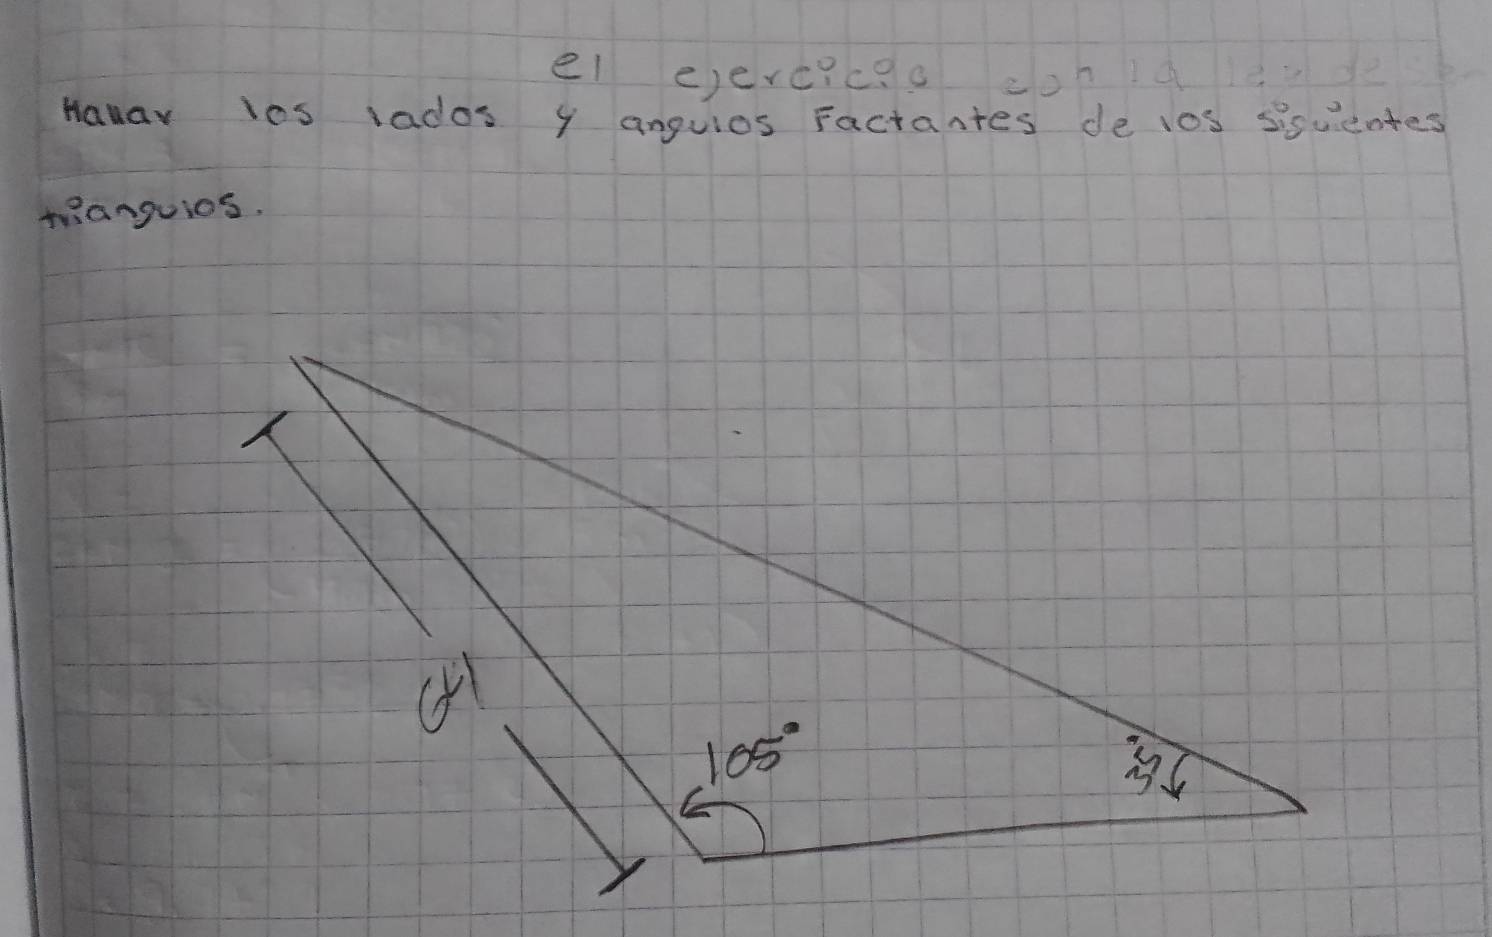 el ejercicio con la ley de
Hallar los lados y angulos Factantes de los siguientes
triangulos.
105°